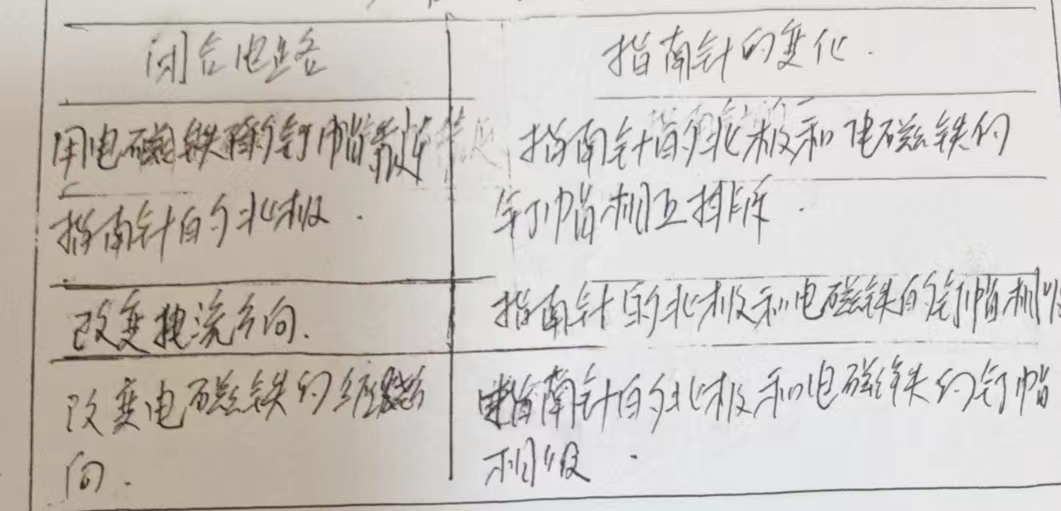 闭合电路
指南针的变化.
用电磁铁的钉帽靠近
指南针的北极.
指南针的北极和电磁铁的
钉帽相互排斥.
改变电流方向.
指南针的北极和电磁铁的钉帽相吸
改变电磁铁的绕线方
向.
指南针的北极和电磁铁的钉帽
相吸.